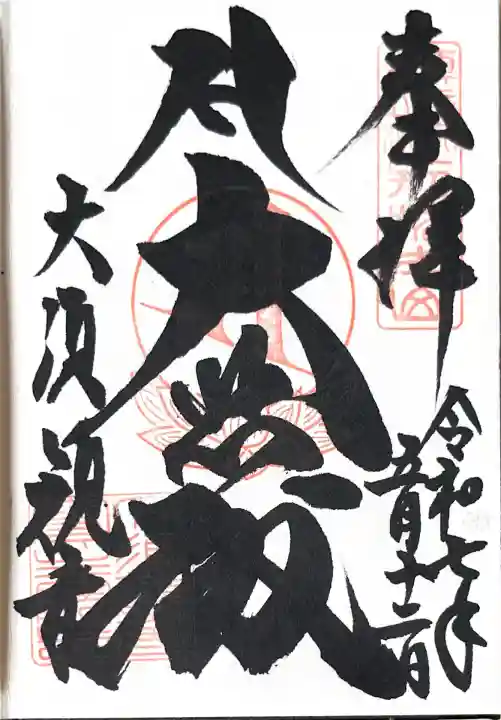 奉拝
令和七年
五月十二日
大悲殿
大須観音